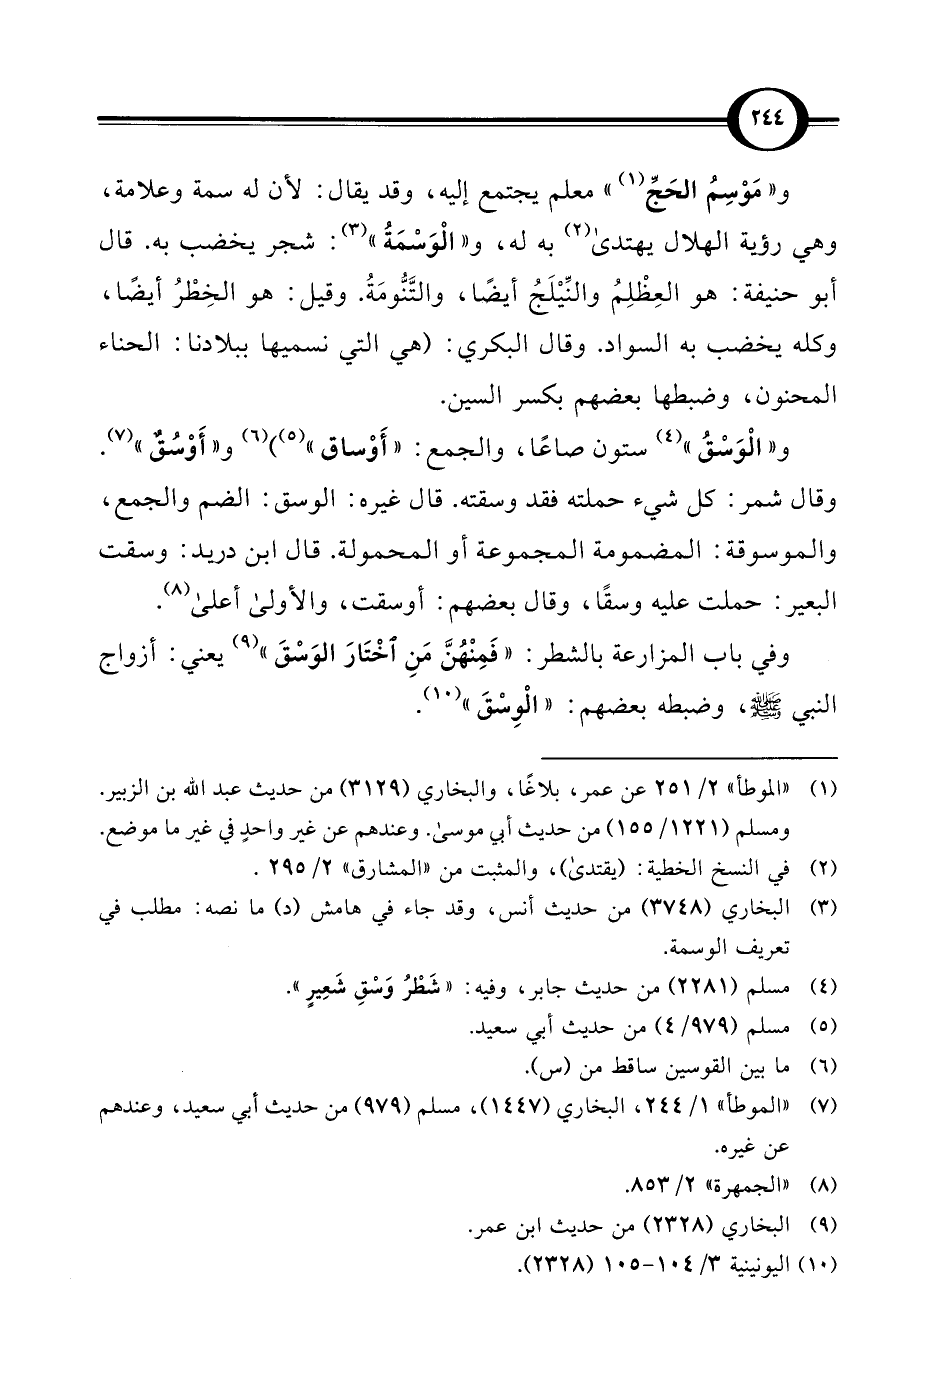 ٢٤٤
و« مَوْسِمُ الحَجِّ(١) » معلم يجتمع إليه، وقد يقال: لأن له سمة وعلامة،
وهي رؤية الهلال يهتدىٰ(٢) به له، و« الْوَسْمَةُ »(٣): شجر يخضب به. قال
أبو حنيفة: هو العِظْلِمُ والنِّيْلَجُ أيضًا، والتَّنُّومَةُ. وقيل: هو الخِطْرُ أيضًا،
وكله يخضب به السواد. وقال البكري: (هي التي نسميها ببلادنا: الحناء
المحنون، وضبطها بعضهم بكسر السين.
و« الْوَسْقُ »(٤) ستون صاعًا، والجمع: « أَوْساق »(٥))(٦) و« أَوْسُقٌ »(٧).
وقال شمر: كل شيء حملته فقد وسقته. قال غيره: الوسق: الضم والجمع،
والموسوقة: المضمومة المجموعة أو المحمولة. قال ابن دريد: وسقت
البعير: حملت عليه وسقًا، وقال بعضهم: أوسقت، والأولىٰ أعلىٰ(٨).
وفي باب المزارعة بالشطر: « فَمِنْهُنَّ مَنِ ٱخْتَارَ الوَسْقَ »(٩) يعني: أزواج
النبي ﷺ، وضبطه بعضهم: « الْوِسْقَ »(١٠).
(١) «الموطأ» ٢/ ٢٥١ عن عمر، بلاغًا، والبخاري (٣١٢٩) من حديث عبد الله بن الزبير.
ومسلم (١٢٢١/ ١٥٥) من حديث أبي موسىٰ. وعندهم عن غير واحدٍ في غير ما موضع.
(٢) في النسخ الخطية: (يقتدىٰ)، والمثبت من «المشارق» ٢/ ٢٩٥ .
(٣) البخاري (٣٧٤٨) من حديث أنس، وقد جاء في هامش (د) ما نصه: مطلب في
تعريف الوسمة.
(٤) مسلم (٢٢٨١) من حديث جابر، وفيه: « شَطْرُ وَسْقِ شَعِيرٍ ».
(٥) مسلم (٩٧٩/ ٤) من حديث أبي سعيد.
(٦) ما بين القوسين ساقط من (س).
(٧) «الموطأ» ١/ ٢٤٤، البخاري (١٤٤٧)، مسلم (٩٧٩) من حديث أبي سعيد، وعندهم
عن غيره.
(٨) «الجمهرة» ٢/ ٨٥٣.
(٩) البخاري (٢٣٢٨) من حديث ابن عمر.
(١٠) اليونينية ٣/ ١٠٤-١٠٥ (٢٣٢٨).